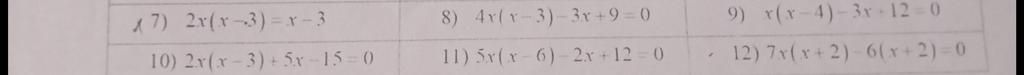 7) 2x(x-3)=x-3 8) 4x(x-3)-3x+9=0 9) x(x-4)-3x+12=0
10) 2x(x-3)+5x-15=0 11) 5x(x-6)-2x+12=0 12) 7x(x+2)-6(x+2)=0